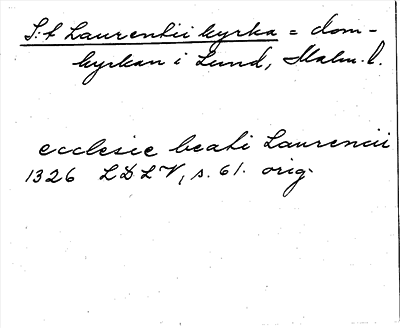 S:t Laurentii kyrka = dom-
kyrkan i Lund, Malm. l.
ecclesie beati Laurencii
1326 LDLV, s. 61. orig.